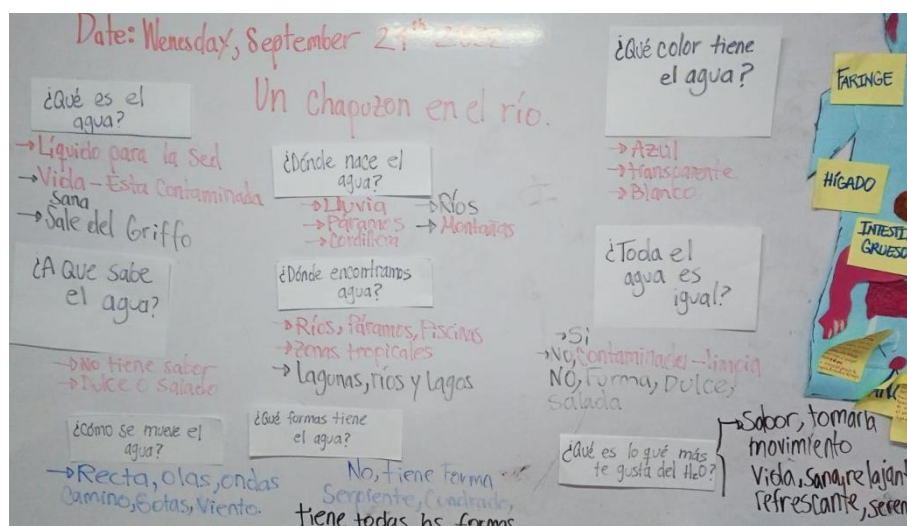 Date: Wenesday, September
Un chapuzon en el río.
¿Qué es el
agua?
→Líquido para la Sed
→Vida - Esta Contaminada
Sana
→Sale del Griffo
¿A Que sabe
el agua?
→No tiene sabor
→Dulce o salado
¿cómo se mueve el
agua?
→Recta, olas, ondas
Camino, Gotas, Viento.
¿Dónde nace el
agua?
→Lluvia →Ríos
→Páramos →Montañas
→Cordillera
¿Dónde encontramos
agua?
→Ríos, Páramos, Piscinas
→Zonas tropicales
→Lagunas, ríos y Lagos
¿Qué formas tiene
el agua?
No, tiene Forma
Serpiente, Cuadrado,
tiene todas las formas
¿Qué color tiene
el agua?
→Azúl
→transparente
→Blanco
¿Toda el
agua es
igual?
→Si
→No, Contaminada - limpia
NO, Forma, Dulce,
Salada
¿Qué es lo qué más
te gusta del H₂O?
→Sabor, tomarla
movimiento
Vida, sana, relajant
refrescante, seren
FARINGE
HÍGADO
INTESTI
GRUESO